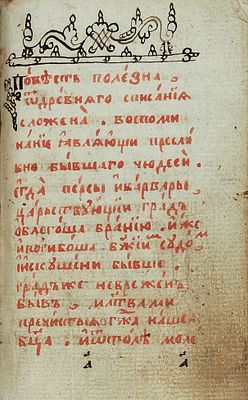 Повѣсть полезна
ѿ древнѧго списанїѧ
сложена . воспоми
нанїе ꙗвлѧющи преслав
но бывшаго чюдесе .
егда персы и варвары
царствующїи градъ
облегоша бранїю . иже
и погибоша бж҃їим судом
искушени бывше .
градъ же невреженъ
бывъ мл҃твами
пречистыѧ гж҃а нашеѧ
бц҃а . и ѿтоле моле